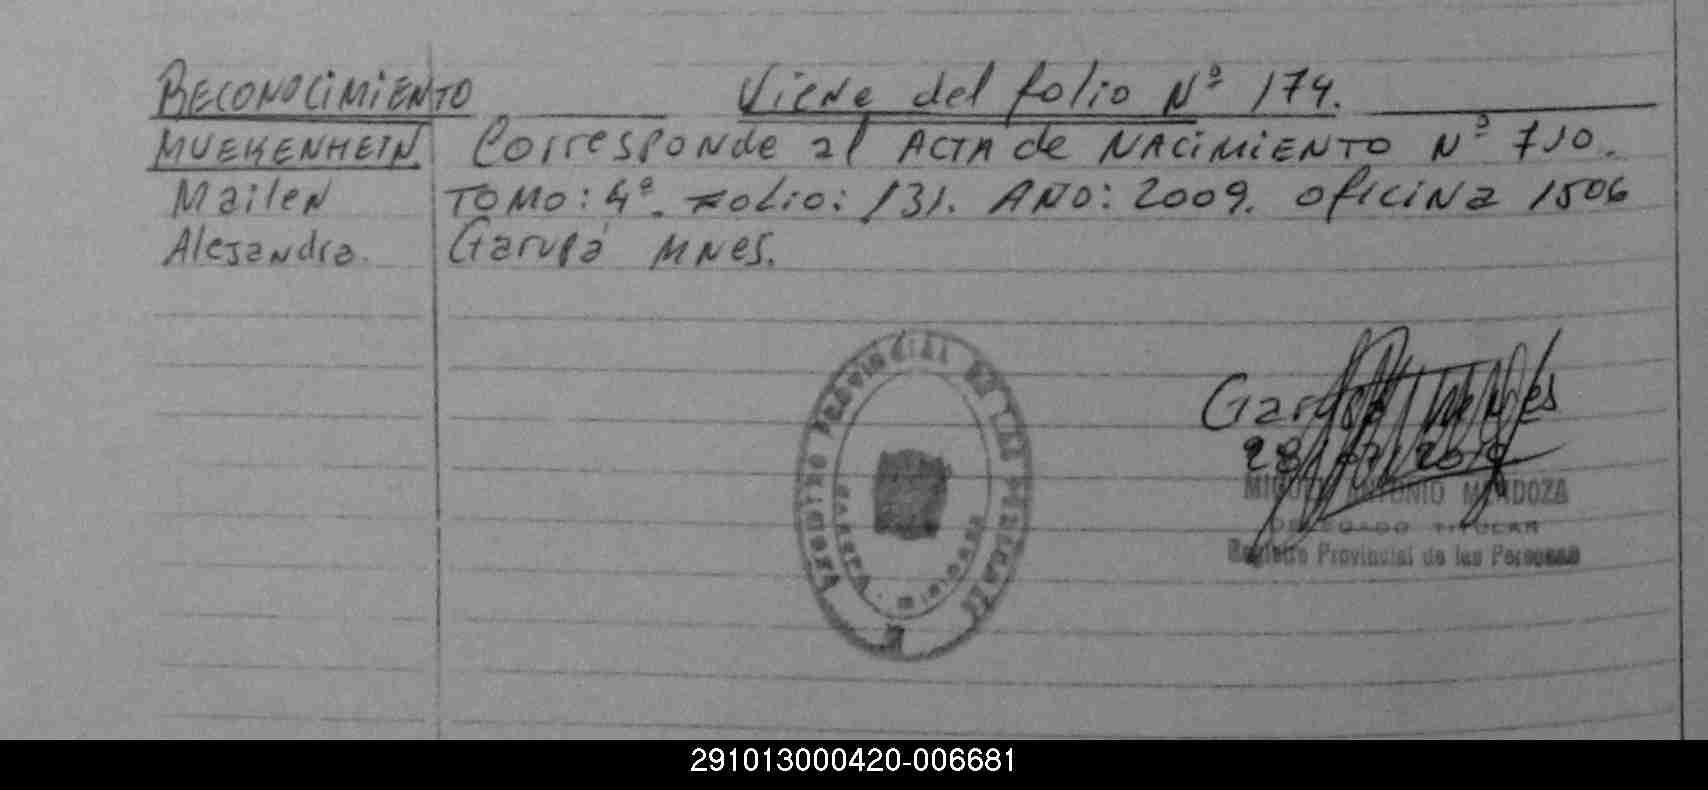 RECONOCIMIENTO Viene del folio Nº 174.
MUEKENHEIN Corresponde al ACTA de NACIMIENTO Nº 710.
Mailen TOMO: 4º. FOLIO: 131. AÑO: 2009. oficina 1506
Alejandra. Garupá MNES.
REGISTRO PROVINCIAL DE LAS PERSONAS
Misiones
Garupá Mnes
28
MIGUEL ANTONIO MENDOZA
DELEGADO TITULAR
Registro Provincial de las Personas
291013000420-006681